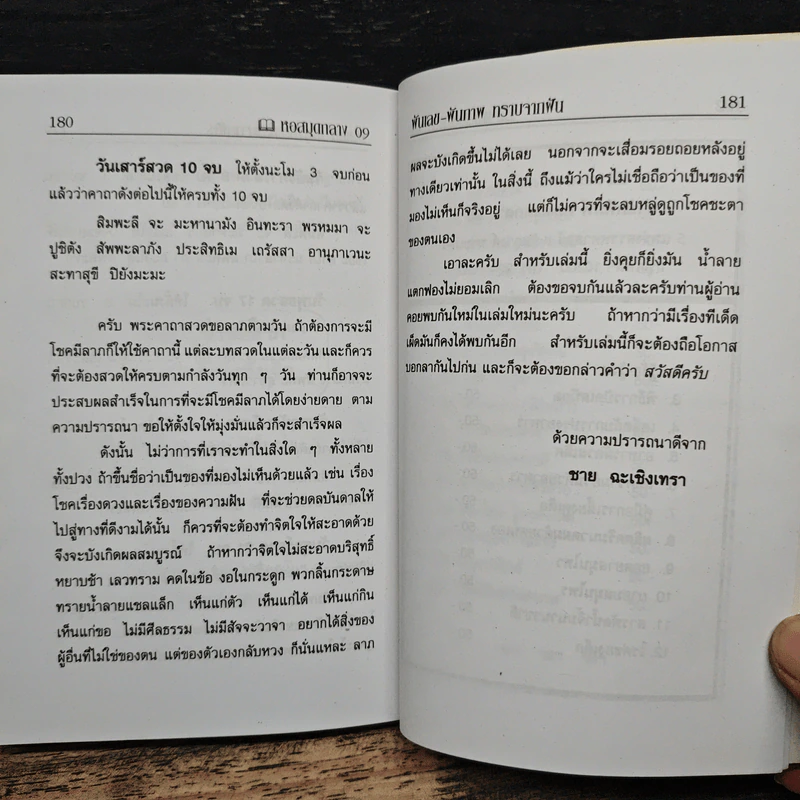 180
หอสมุดกลาง 09
วันเสาร์สวด 10 จบ ให้ตั้งนะโม 3 จบก่อน
แล้วว่าคาถาดังต่อไปนี้ให้ครบทั้ง 10 จบ
สิมพะลี จะ มะหานามัง อินทะรา พรหมมา จะ
ปูชิตัง สัพพะลาภัง ประสิทธิเม เถรัสสา อานุภาเวนะ
สะทาสุขี ปิยังมะมะ
ครับ พระคาถาสวดขอลาภตามวัน ถ้าต้องการจะมี
โชคมีลาภก็ให้ใช้คาถานี้ แต่ละบทสวดในแต่ละวัน และก็ควร
ที่จะต้องสวดให้ครบตามกำลังวันทุก ๆ วัน ท่านก็อาจจะ
ประสบผลสำเร็จในการที่จะมีโชคมีลาภได้โดยง่ายดาย ตาม
ความปรารถนา ขอให้ตั้งใจให้มุ่งมั่นแล้วก็จะสำเร็จผล
ดังนั้น ไม่ว่าการที่เราจะทำในสิ่งใด ๆ ทั้งหลาย
ทั้งปวง ถ้าขึ้นชื่อว่าเป็นของที่มองไม่เห็นด้วยแล้ว เช่น เรื่อง
โชคเรื่องดวงและเรื่องของความฝัน ที่จะช่วยดลบันดาลให้
ไปสู่ทางที่ดีงามได้นั้น ก็ควรที่จะต้องทำจิตใจให้สะอาดด้วย
จึงจะบังเกิดผลสมบูรณ์ ถ้าหากว่าจิตใจไม่สะอาดบริสุทธิ์
หยาบช้า เลวทราม คดในข้อ งอในกระดูก พวกลิ้นกระดาษ
ทรายน้ำลายแชลแล็ก เห็นแก่ตัว เห็นแก่ได้ เห็นแก่กิน
เห็นแก่ขอ ไม่มีศีลธรรม ไม่มีสัจจะวาจา อยากได้สิ่งของ
ผู้อื่นที่ไม่ใช่ของตน แต่ของตัวเองกลับหวง ก็นั่นแหละ ลาภ
ฝันเลข-ฝันภาพ ทราบจากฝัน
181
ผลจะบังเกิดขึ้นไม่ได้เลย นอกจากจะเสื่อมรอยถอยหลังอยู่
ทางเดียวเท่านั้น ในสิ่งนี้ ถึงแม้ว่าใครไม่เชื่อถือว่าเป็นของที่
มองไม่เห็นก็จริงอยู่ แต่ก็ไม่ควรที่จะลบหลู่ดูถูกโชคชะตา
ของตนเอง
เอาละครับ สำหรับเล่มนี้ ยิ่งคุยก็ยิ่งมัน น้ำลาย
แตกฟองไม่ยอมเลิก ต้องขอจบกันแล้วละครับท่านผู้อ่าน
คอยพบกันใหม่ในเล่มใหม่นะครับ ถ้าหากว่ามีเรื่องทีเด็ด
เผ็ดมันก็คงได้พบกันอีก สำหรับเล่มนี้ก็จะต้องถือโอกาส
บอกลากันไปก่อน และก็จะต้องขอกล่าวคำว่า สวัสดีครับ
ด้วยความปรารถนาดีจาก
ชาย ฉะเชิงเทรา